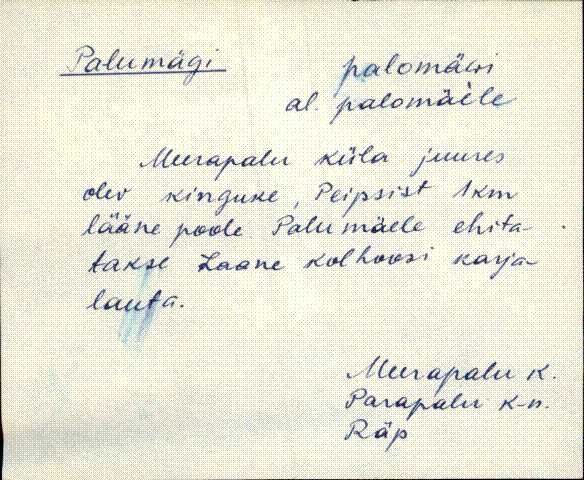 Palumägi
palomäwi
al. palomäele
Meerapalu küla juures
olev kinguke, Peipsist 1km
lääne poole Palumäele ehita-
takse Laane kolhoosi karja-
lauta.
Meerapalu k.
Parapalu k-n.
Räp